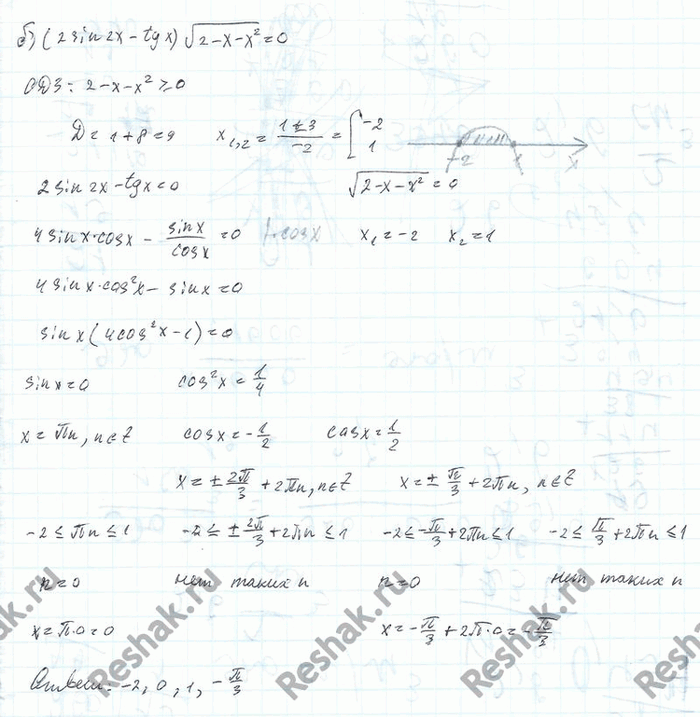 б) (2 sin 2x - tg x) √(2-x-x²) = 0
ОДЗ: 2-x-x² ≥ 0
D = 1+8 = 9 x₁,₂ = (1±3)/(-2) = [ -2 1 -2 1 x
2 sin 2x - tg x = 0 √(2-x-x²) = 0
4 sin x · cos x - sin x/cos x = 0 | · cos x x₁ = -2 x₂ = 1
4 sin x · cos² x - sin x = 0
sin x (4 cos² x - 1) = 0
sin x = 0 cos² x = 1/4
x = πn, n∈Z cos x = -1/2 cos x = 1/2
x = ± 2π/3 + 2πn, n∈Z x = ± π/3 + 2πn, n∈Z
-2 ≤ πn ≤ 1 -2 ≤ ± 2π/3 + 2πn ≤ 1 -2 ≤ -π/3 + 2πn ≤ 1 -2 ≤ π/3 + 2πn ≤ 1
n = 0 нет таких n n = 0 нет таких n
x = π·0 = 0 x = -π/3 + 2π·0 = -π/3
Ответ: -2, 0, 1, -π/3
Reshak.ru
Reshak.ru
Reshak.ru
Reshak.ru